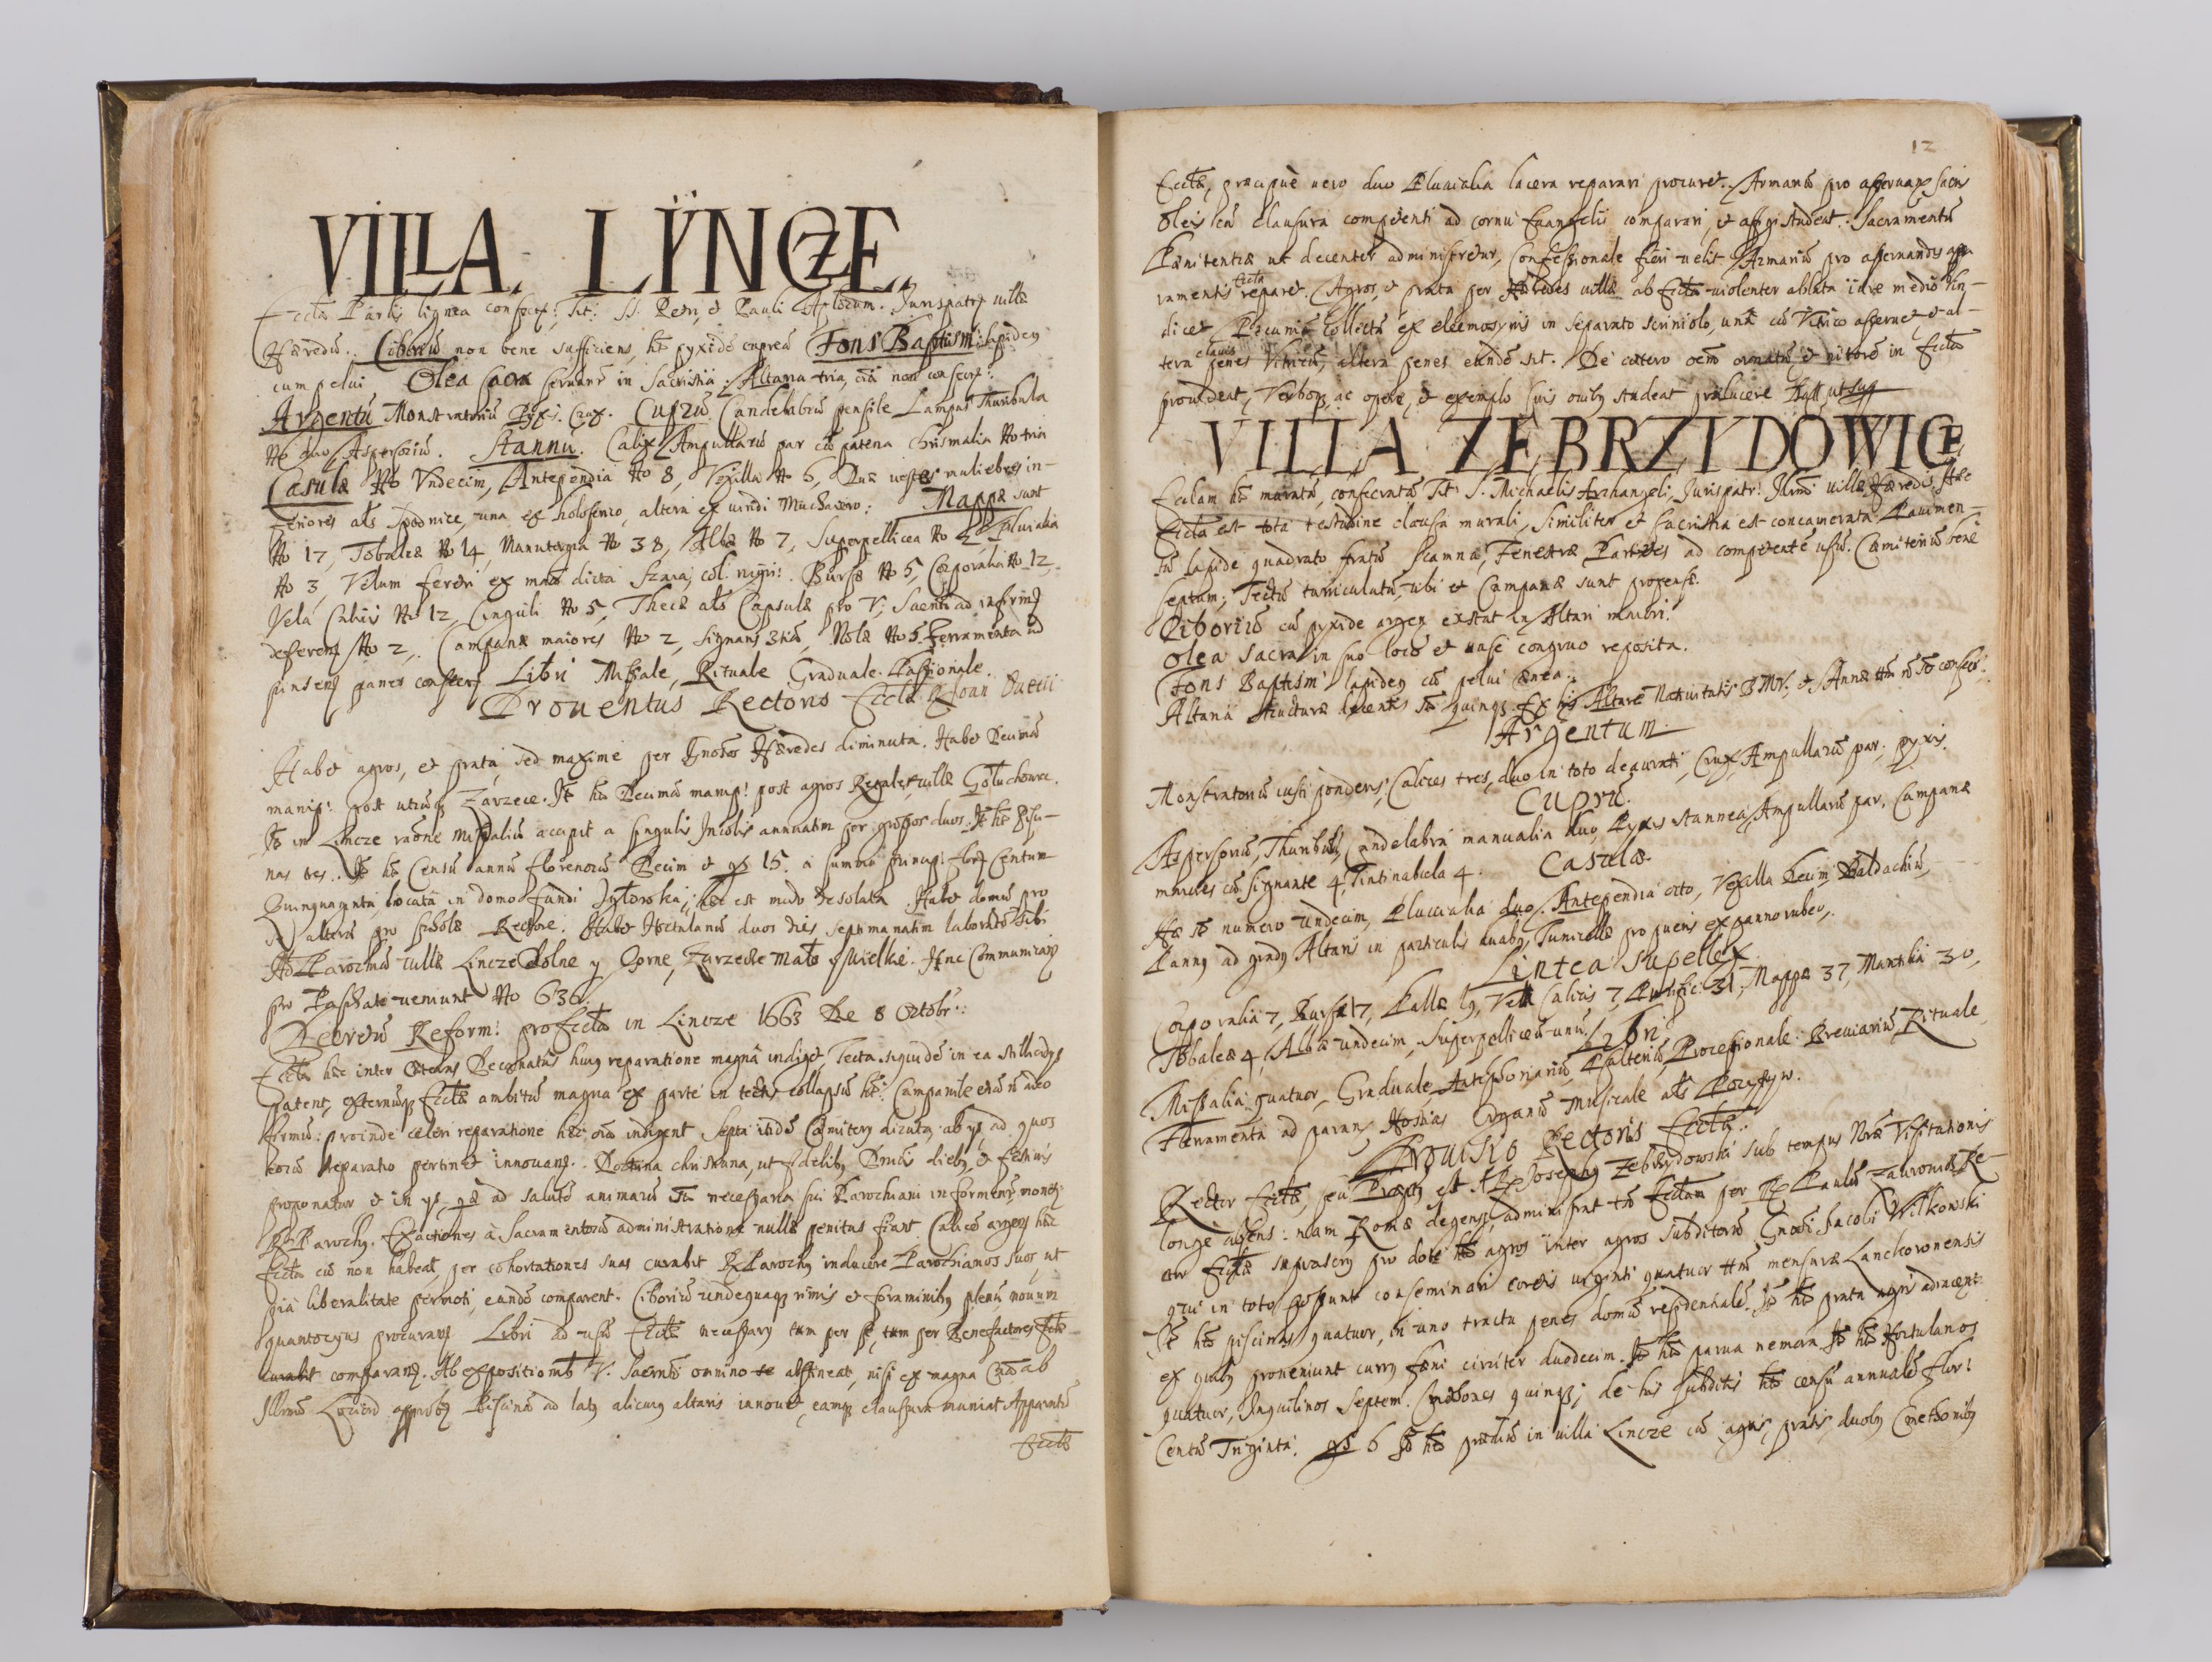 VILLA LŸNCZE.
Eccła Parlis lignea consecr: Tit: SS. Petri, et Pauli Aplorum. Jurispatr: villæ
Hæredū. Ciboriū non bene sufficiens, ht pyxidē cupreā Fons Baptismi lapideus
cum pelui Olea sacra seruantr in Sacristia. Altaria tria, non consecr:
Argentū Monstratoriū Pyxis. Crux. Cuprū Candelabrū pensile Lampas Thuribula
No duo, Aspersoriū. Stannū. Calix Ampullarū par cū patena Chrismalia No tria
Casulæ No Vndecim, Antependia No 8, Vexilla No 6, Duæ vestes muliebres in-
feriores als Spodnice, una ex holoserico, altera ex viridi Muchaiero: Mappæ sunt
No 17, Tobaleæ No 14, Manutergia No 38, Albæ No 7, Superpellicea No 4 Pluuialia
No 3, Velum feretri ex mãa dicta Szata, col: nigri: Bursæ No 5, Corporalia No 12,
Vela Calicis No 12, Cinguli No 5, Thecæ als Capsulæ pro V: Saento ad infirmos
deferen: No 2. Campanæ maiores No 2, signans 3tiā, Nolæ No 5, Ferramenta ad
pinsen: panes Libri Missale, Rituale Graduale. Passionale.
Prouentus Rectoris Eccłæ R Joan
Habet agros, et prata, sed maxime per Gnosos Hæredes diminuta. Habet Decimā
manip: post utrūq Zarzece. It hт Decimā manip: post agros Regales villæ Goluchowce.
It in Lincze raōne Missaliū accipit a singulis Incolis annuatim per grossos duos. It ht Pisci-
nas tres. It ht Censū annū florenorū Decim et gs 15. a summa princip: flor: Centum
Quinquaginta, locatā in domo fundi hæc est modo desolata Habet domū pro
se alterā pro scholæ Rectore. Habet Hortulanū duos dies septimanatim laborātē sibi
Ad Parochiā villæ Lincze Dolne y Gorne, Zarzecze Małe y Wielkie. Hinc Communican:
pro Paschate veniunt No 636.
Decretū Reform: pro Eccła in Lincze 1663 Die 8 Octobr:
Eccła hæc inter cæteras Decanatus huius reparatione magna indiget Tecta siquidē in ea stillicidijs
patent, externūq Eccłæ ambitū magna ex parte in tectis collapsū ht: Campanile etiā n adeo
firmū: proinde celeri reparatione hæc oīa indigent Septa itidē Cæmiterij diruta, ab ijs, ad quos
eorū reparatio pertinet innouan: Doctrina christiana, ut fidelibus Dnicis diebus, et festiuis
proponatur et in ijs, quæ ad salutē animarū st necessaria sui Parochiani informentr, monet:
R Parochus. Exactiones a Sacramentorū administratione nullæ penitus fiant Calicē argen: hæc
Eccła cū non habeat, per cohortationes suas curabit R Parochus inducere Parochianos suos, ut
pia liberalitate permoti, eundē comparent. Ciboriū undequaq rimis et foraminibus plenū, nouum
quantocyus procuran: Libri ad usū Eccłæ necessarij tum per se, tum per Benefactores
curabit comparan: Ab expositiōnb V. Saernti omnino se abstineat, nisi ex magna Cãa ab
Illrmo Loci Ord: approb: Piscinā ad latus alicuius altaris innouet, eamq clausura muniat Apparatū
Eccłæ
12
Eccłæ, præcipuè vero duo Pluuialia lacera reparari procuret. Armariū pro asseruan: sacris
Oleis cū clausura competenti ad cornu Euangelii comparari, et affigi studeat. Sacramentū
Pænitentiæ ut decenter administretur, Confessionale fieri velit Armariū pro asseruandis appa
ramentis Eccłæ reparet. Agros, et prata per Hæredes villæ ab Eccła violenter ablata iure medio vin-
dicet Pecuniā collectā ex eleemosynis in separato scriniolo, unā cū Vitrico asseruet, et al-
tera clauis penes Vitricū, altera penes eundē sit. De cætero oēm ornatū et nitorē in Eccła
prouideat, Verboq, ac opere, et exemplo suis ouibus studeat prælucere Aplł, ut sup
VILLA ZEBRZYDOWICE
Ecclam ht muratā, consecratā Tit S. Michaelis Archangeli, Jurispatr: Illrmi villæ Hæredis Hæc
Eccła est tota testudine clausa murali, similiter et sacristia est concamerata Pauimen-
tū lapide quadrato stratū Scamna, Fenestræ Parietes ad competentē usū. Cæmiteriū bene
septum, Tectū turriculatū, ubi et Campanæ sunt propensæ.
Ciboriū cū pyxide argen: exstat in Altari maiori.
Olea Sacra in suo loco et vase congruo reposita.
Fons Baptismi lapideus cū pelui ænea.
Altaria structuræ decentis st quinq. Ex his Altare Natiuitatis BMV, et S Annæ tm n st consecr:
Argentum
Monstratoriū iusti ponderis, Calices tres, duo in toto deaurati, Crux, Ampullarū par, pyxis.
Cuprū.
Aspersoriū, Thuribulū, Candelabra manualia duo, Pyxis stannea, Ampullarū par, Campanæ
maiores cū signante 4, Tintinabula 4. Casulæ
Hæ st numero undecim, Pluuialia duo, Antependia octo, Vexilla Decim, Baldachinū,
Pannus ad gradus Altaris in particulis duabus, Tunicellæ pro pueris ex panno rubeo,
Lintea supellex
Corporalia 7, Bursæ 17, Pallæ 19, Vela Calicis 7, Purific: 31, Mappæ 37, Mantilia 30,
Tobaleæ 4, Albæ undecim, Superpelliceū unū. Libri
Missalia quatuor, Graduale, Antiphonariū, Psalteriū, Processionale. Breuiariū, Rituale,
Ferramenta ad paran: Hostias Organū musicale als Pozytyw.
Prouisio Rectoris Eccłæ:
Rector Eccłæ, seu Præptus est AR Josephus Zebrzydowski sub tempus Nræ Visitationis
longè agens: nam Romæ degens, administrat tn Ecclam per R Paulū
Eccłæ suprascrip: pro dote ht agros inter agros subditorū Gnosi Jacobi Wilkowski
qui in toto possunt conseminari coretis viginti quatuor tm mensuræ Lanckoronensis
It ht piscinas quatuor, in uno tractu penes domū residentialē. It ht prata agris adiacent:
ex quibus proueniunt currus fæni circiter duodecim. It ht parua nemora It ht Hortulanos
quatuor, Inquilinos Septem. Cmethones quinq; de his subditis ht censū annualē flor:
Centū Triginta. gs 6 It ht prædiū in villa Lincze cū agris, pratis, duobus Cmethonibus